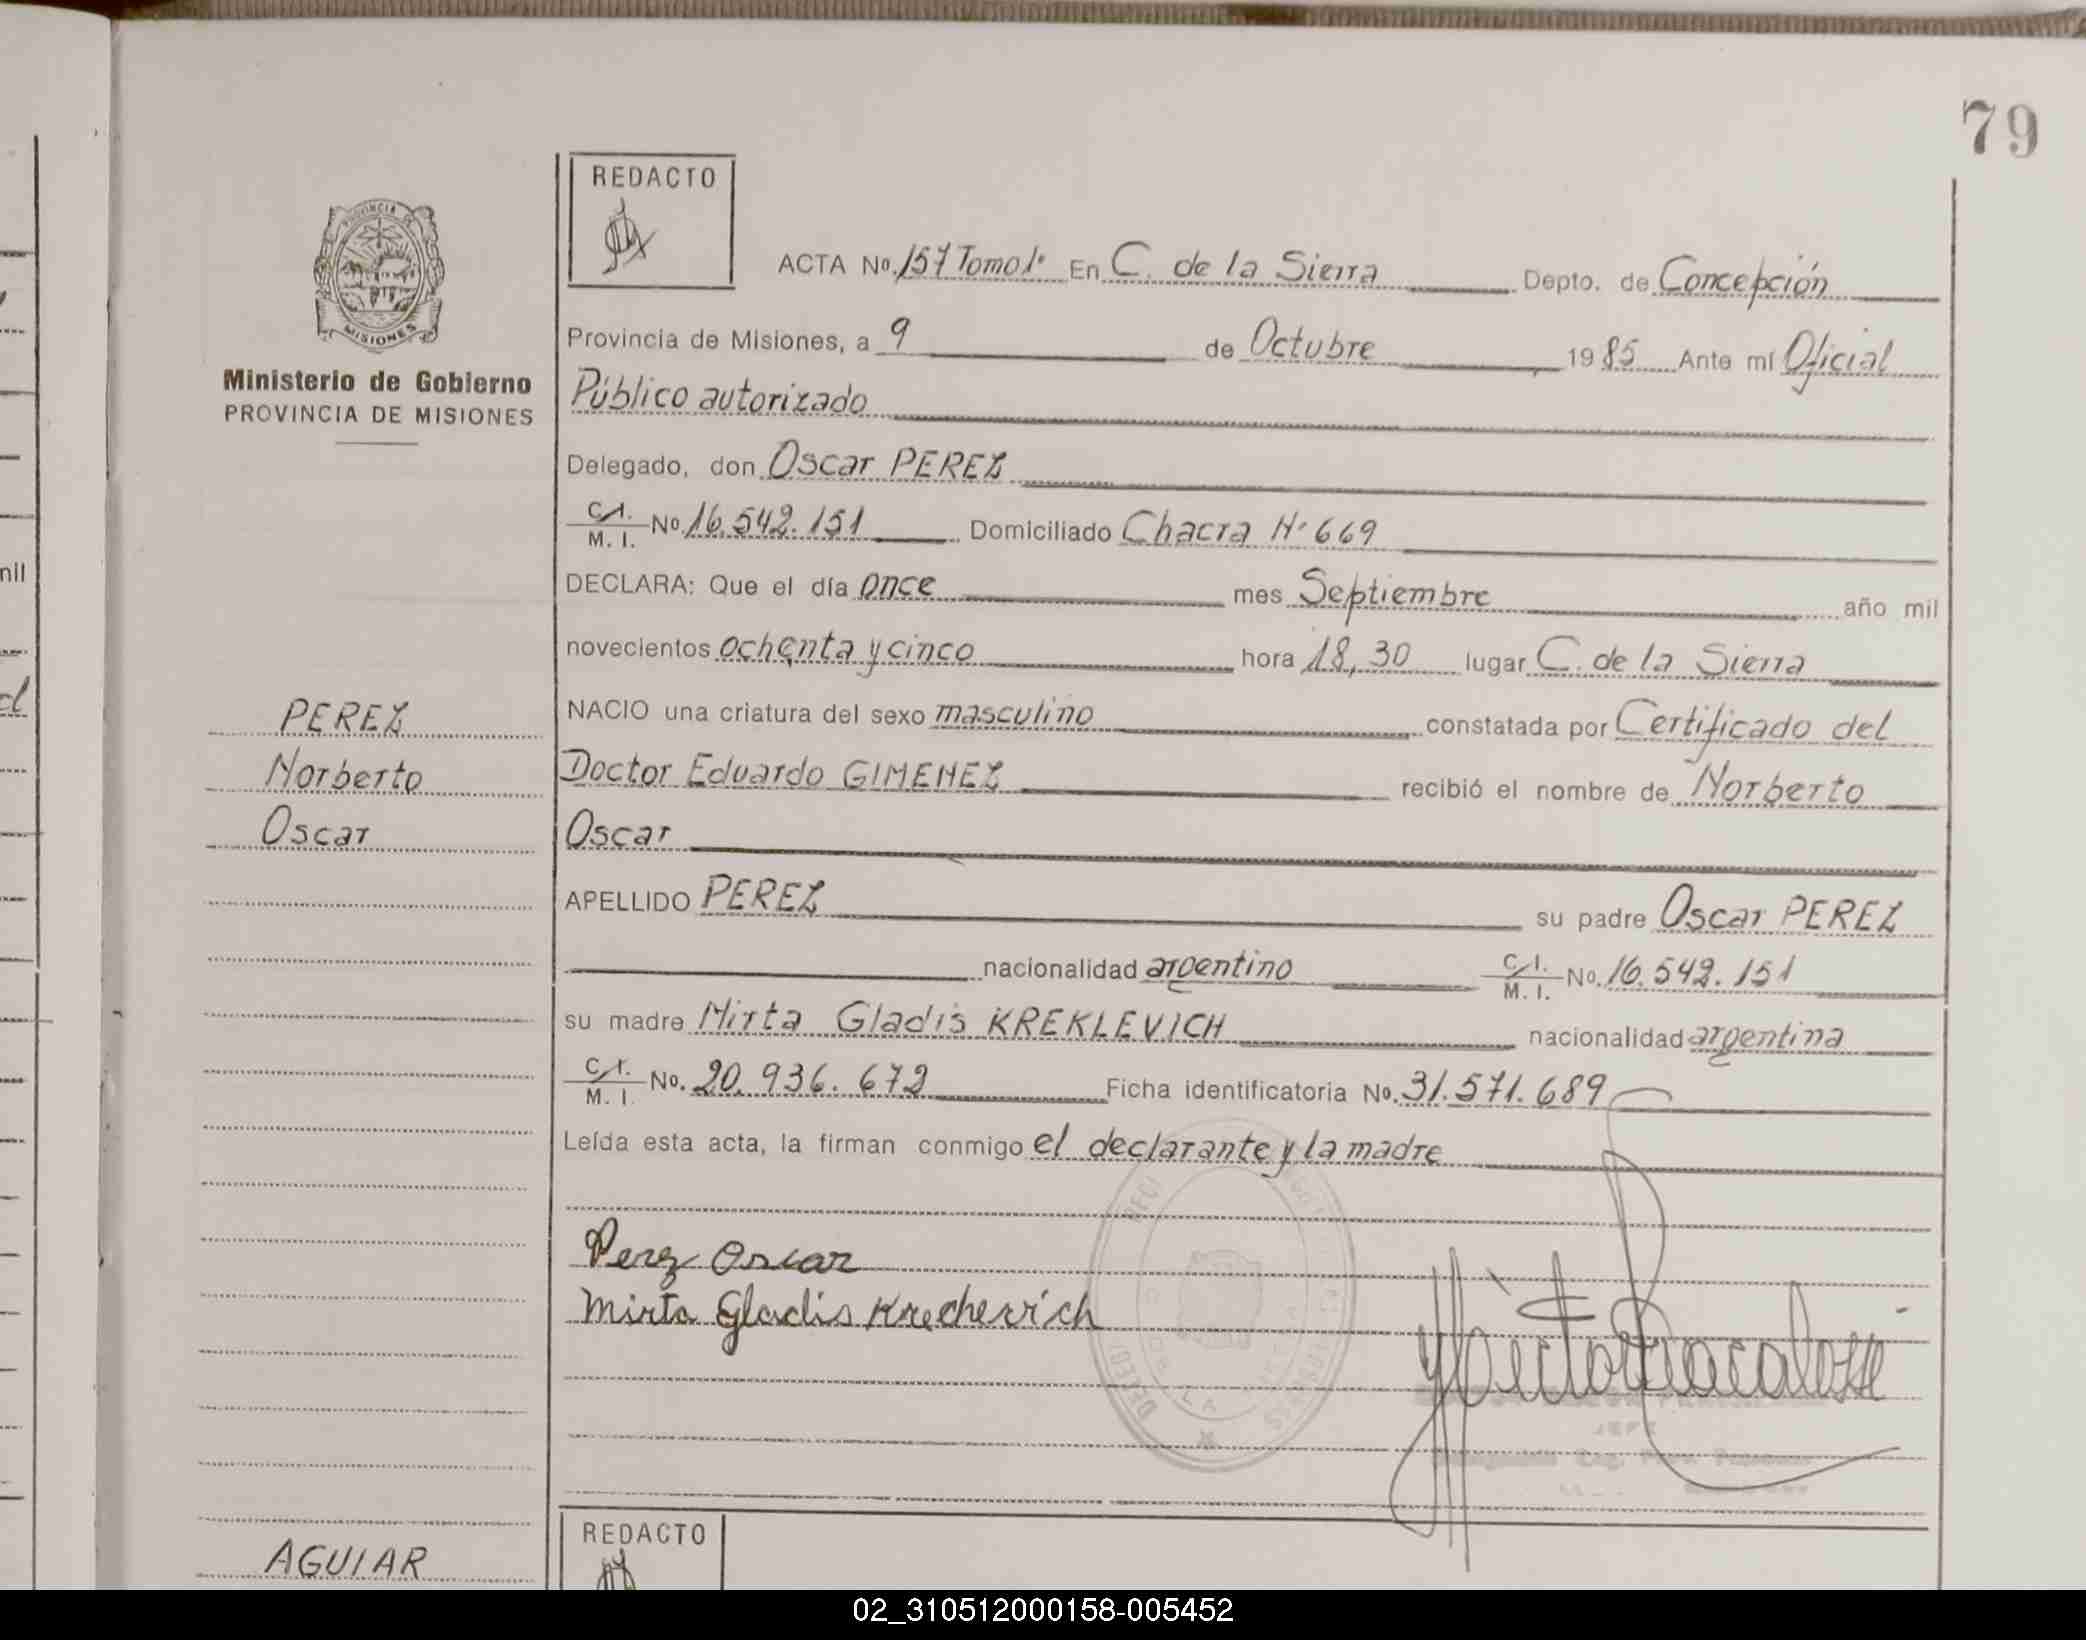 79
REDACTO
PROVINCIA DE
MISIONES
Ministerio de Gobierno
PROVINCIA DE MISIONES
ACTA No. 157 Tomo 1° En C. de la Sierra Depto. de Concepción
Provincia de Misiones, a 9 de Octubre 1985 Ante mí Oficial
Público autorizado
Delegado, don Oscar PEREZ
C.I. M. I. No. 16.542.151 Domiciliado Chacra N° 669
DECLARA: Que el día once mes Septiembre año mil
novecientos ochenta y cinco hora 18,30 lugar C. de la Sierra
NACIO una criatura del sexo masculino constatada por Certificado del
Doctor Eduardo GIMENEZ recibió el nombre de Norberto
Oscar
APELLIDO PEREZ su padre Oscar PEREZ
nacionalidad argentino C.I. M. I. No. 16.542.151
su madre Mirta Gladis KREKLEVICH nacionalidad argentina
C.I. M. I. No. 20.936.672 Ficha identificatoria No. 31.571.689
Leída esta acta, la firman conmigo el declarante y la madre
Perez Oscar
Mirta Gladis
JEFE
PEREZ
Norberto
Oscar
AGUIAR
REDACTO
nil
02_310512000158-005452